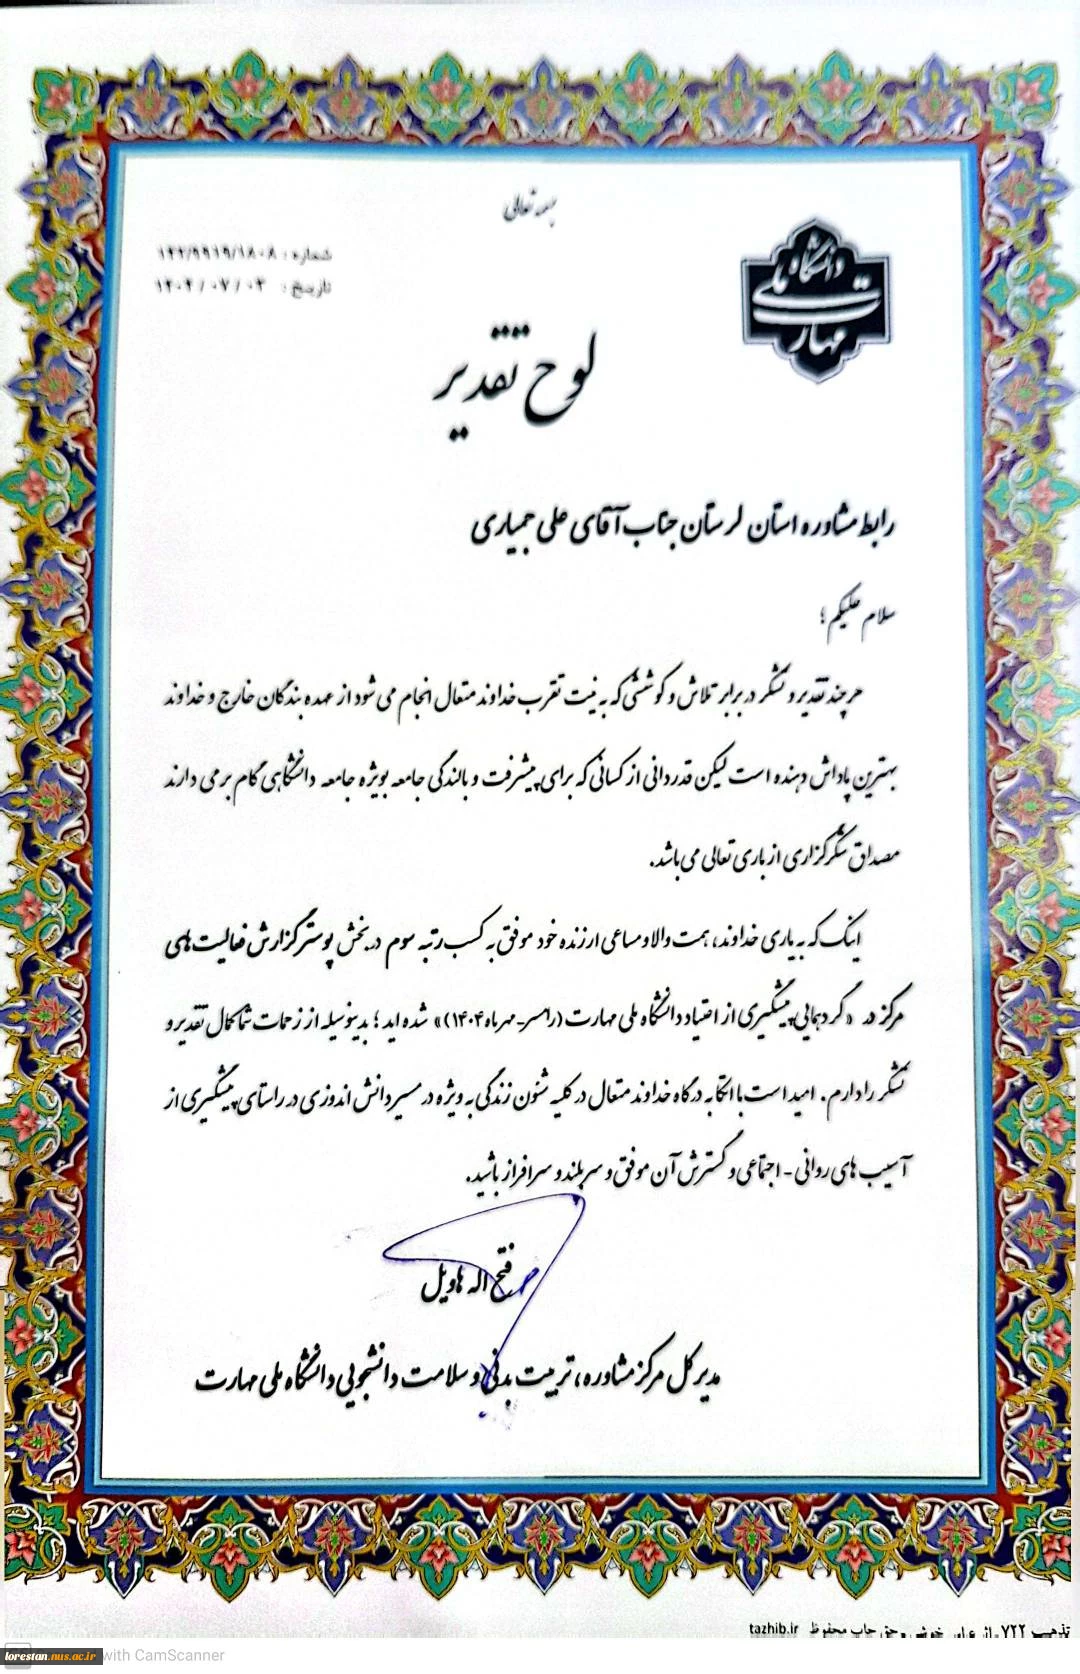 بسمه تعالی
دانشگاه ملی مهارت
شماره : ۱۴۲/۹۹۱۹/۱۸۰۸
تاریخ : ۱۴۰۴ / ۰۷ / ۰۳
لوح تقدیر
رابط مشاوره استان لرستان جناب آقای علی جمیاری
سلام علیکم ؛
هر چند تقدیر و تشکر در برابر تلاش و کوششی که به نیت تقرب خداوند متعال انجام می شود از عهده بندگان خارج و خداوند
بهترین پاداش دهنده است لیکن قدردانی از کسانی که برای پیشرفت و بالندگی جامعه بویژه جامعه دانشگاهی گام بر می دارند
مصداق شکرگزاری از باری تعالی می باشد.
اینک که به یاری خداوند، همت والا و مساعی ارزنده خود موفق به کسب رتبه سوم در بخش پوستر گزارش فعالیت های
مرکز در «گردهمایی پیشگیری از اعتیاد دانشگاه ملی مهارت (رامسر-مهرماه ۱۴۰۴)» شده اید ؛ بدینوسیله از زحمات شما کمال تقدیر و
تشکر را دارم. امید است با اتکا به درگاه خداوند متعال در کلیه شئون زندگی به ویژه در مسیر دانش اندوزی در راستای پیشگیری از
آسیب های روانی - اجتماعی و گسترش آن موفق و سربلند و سرافراز باشید.
فتح اله هاویل
مدیر کل مرکز مشاوره، تربیت بدنی و سلامت دانشجویی دانشگاه ملی مهارت
تذهیب ۷۲۲ حق چاپ محفوظ tazhib.ir
lorestan.nus.ac.ir with CamScanner